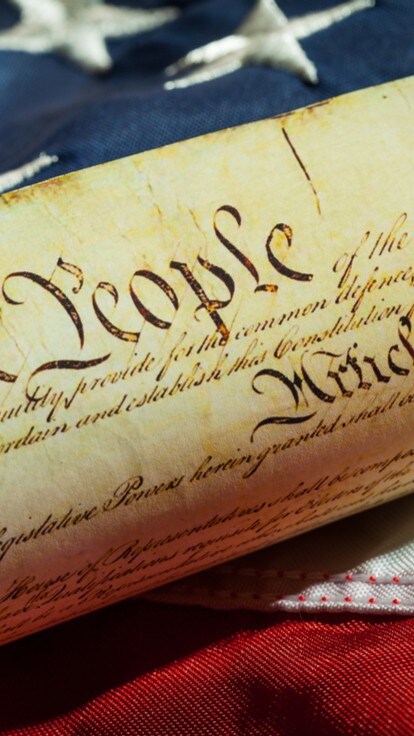 People of the
quility, provide for the common defence
ordain and establish this Constitution
Article
egislative Powers herein granted shall be
House of Representatives shall be compo